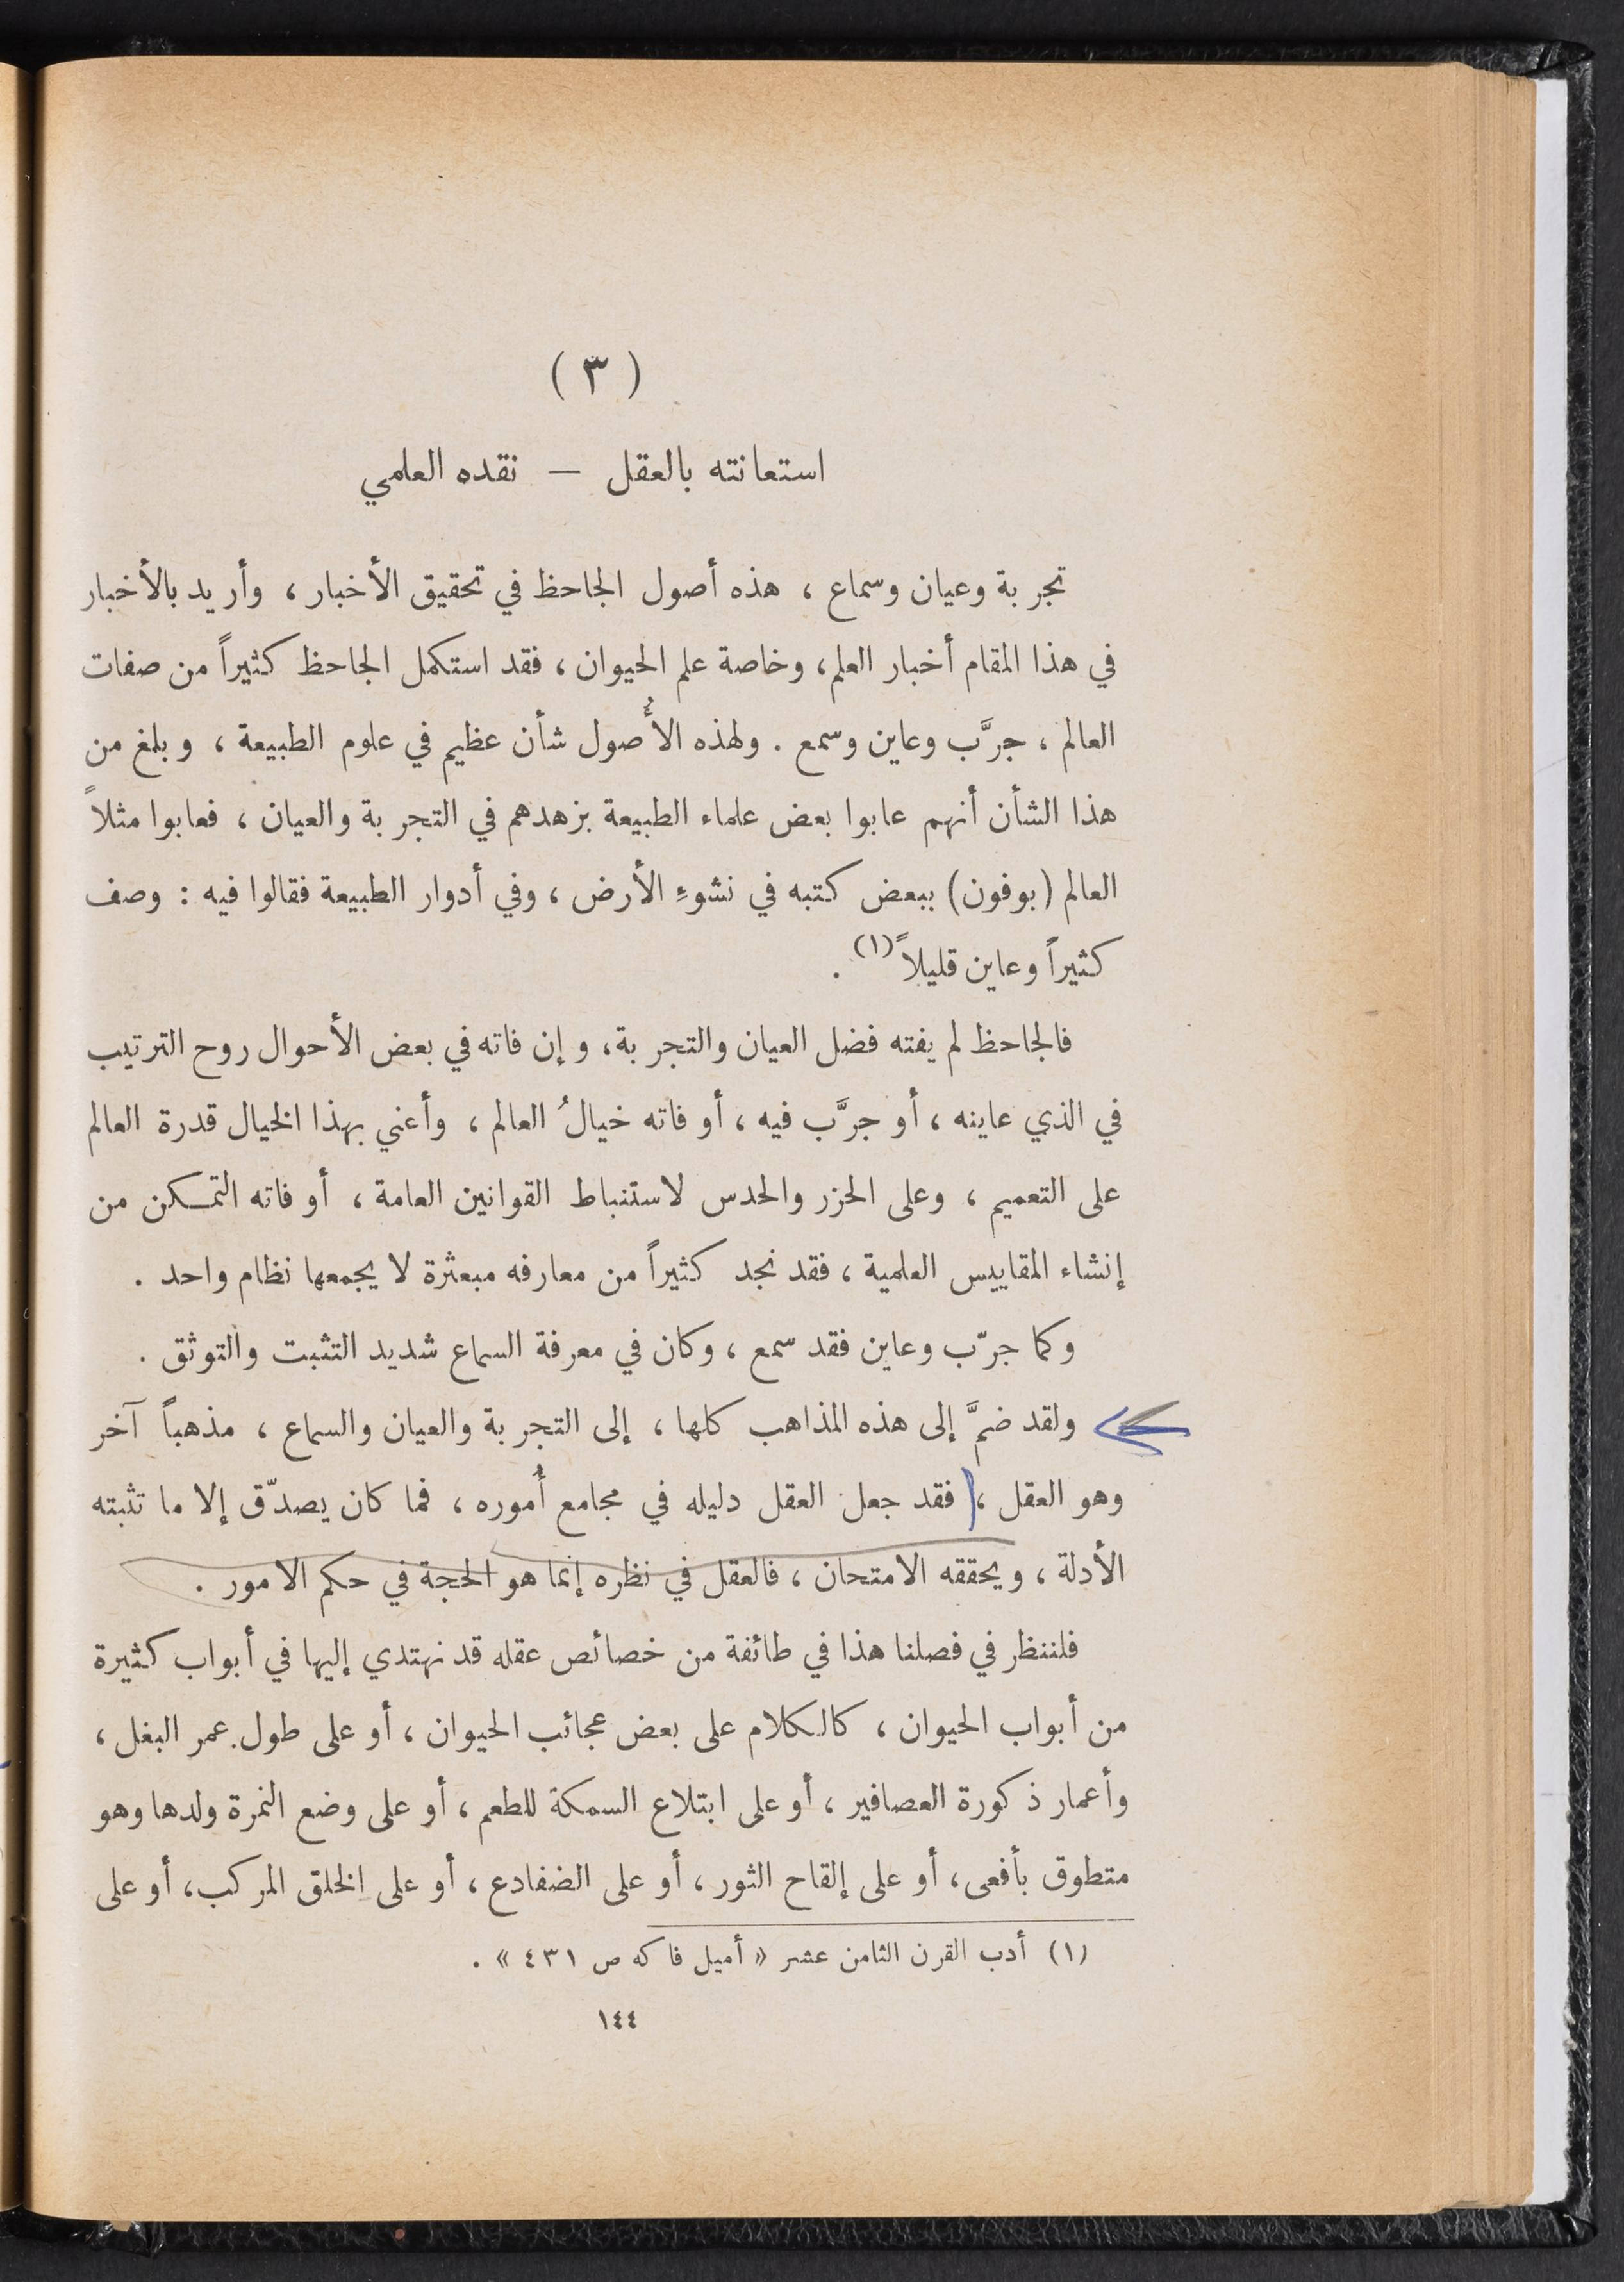 ( ٣ )
استعانته بالعقل — نقده العلمي
تجربة وعيان وسماع ، هذه أصول الجاحظ في تحقيق الأخبار ، وأريد بالأخبار
في هذا المقام أخبار العلم ، وخاصة علم الحيوان ، فقد استكمل الجاحظ كثيراً من صفات
العالم ، جرَّب وعاين وسمع . ولهذه الأُصول شأن عظيم في علوم الطبيعة ، وبلغ من
هذا الشأن أنهم عابوا بعض علماء الطبيعة بزهدهم في التجربة والعيان ، فعابوا مثلاً
العالم (بوفون) ببعض كتبه في نشوءِ الأرض ، وفي أدوار الطبيعة فقالوا فيه : وصف
كثيراً وعاين قليلاً (١) .
فالجاحظ لم يفته فضل العيان والتجربة ، وإن فاته في بعض الأحوال روح الترتيب
في الذي عاينه ، أو جرَّب فيه ، أو فاته خيالُ العالم ، وأعني بهذا الخيال قدرة العالم
على التعميم ، وعلى الحزر والحدس لاستنباط القوانين العامة ، أو فاته التمكن من
إنشاء المقاييس العلمية ، فقد نجد كثيراً من معارفه مبعثرة لا يجمعها نظام واحد .
وكما جرّب وعاين فقد سمع ، وكان في معرفة السماع شديد التثبت والتوثق .
ولقد ضمَّ إلى هذه المذاهب كلها ، إلى التجربة والعيان والسماع ، مذهباً آخر
وهو العقل ، فقد جعل العقل دليله في مجامع أُموره ، فما كان يصدّق إلا ما تثبته
الأدلة ، ويحققه الامتحان ، فالعقل في نظره إنما هو الحجة في حكم الامور .
فلننظر في فصلنا هذا في طائفة من خصائص عقله قد نهتدي إليها في أبواب كثيرة
من أبواب الحيوان ، كالكلام على بعض عجائب الحيوان ، أو على طول عمر البغل ،
وأعمار ذكورة العصافير ، أو على ابتلاع السمكة للطعم ، أو على وضع النمرة ولدها وهو
متطوق بأفعى ، أو على إلقاح الثور ، أو على الضفادع ، أو على الخلق المركب ، أو على
(١) أدب القرن الثامن عشر « أميل فاكه ص ٤٣١ » .
١٤٤